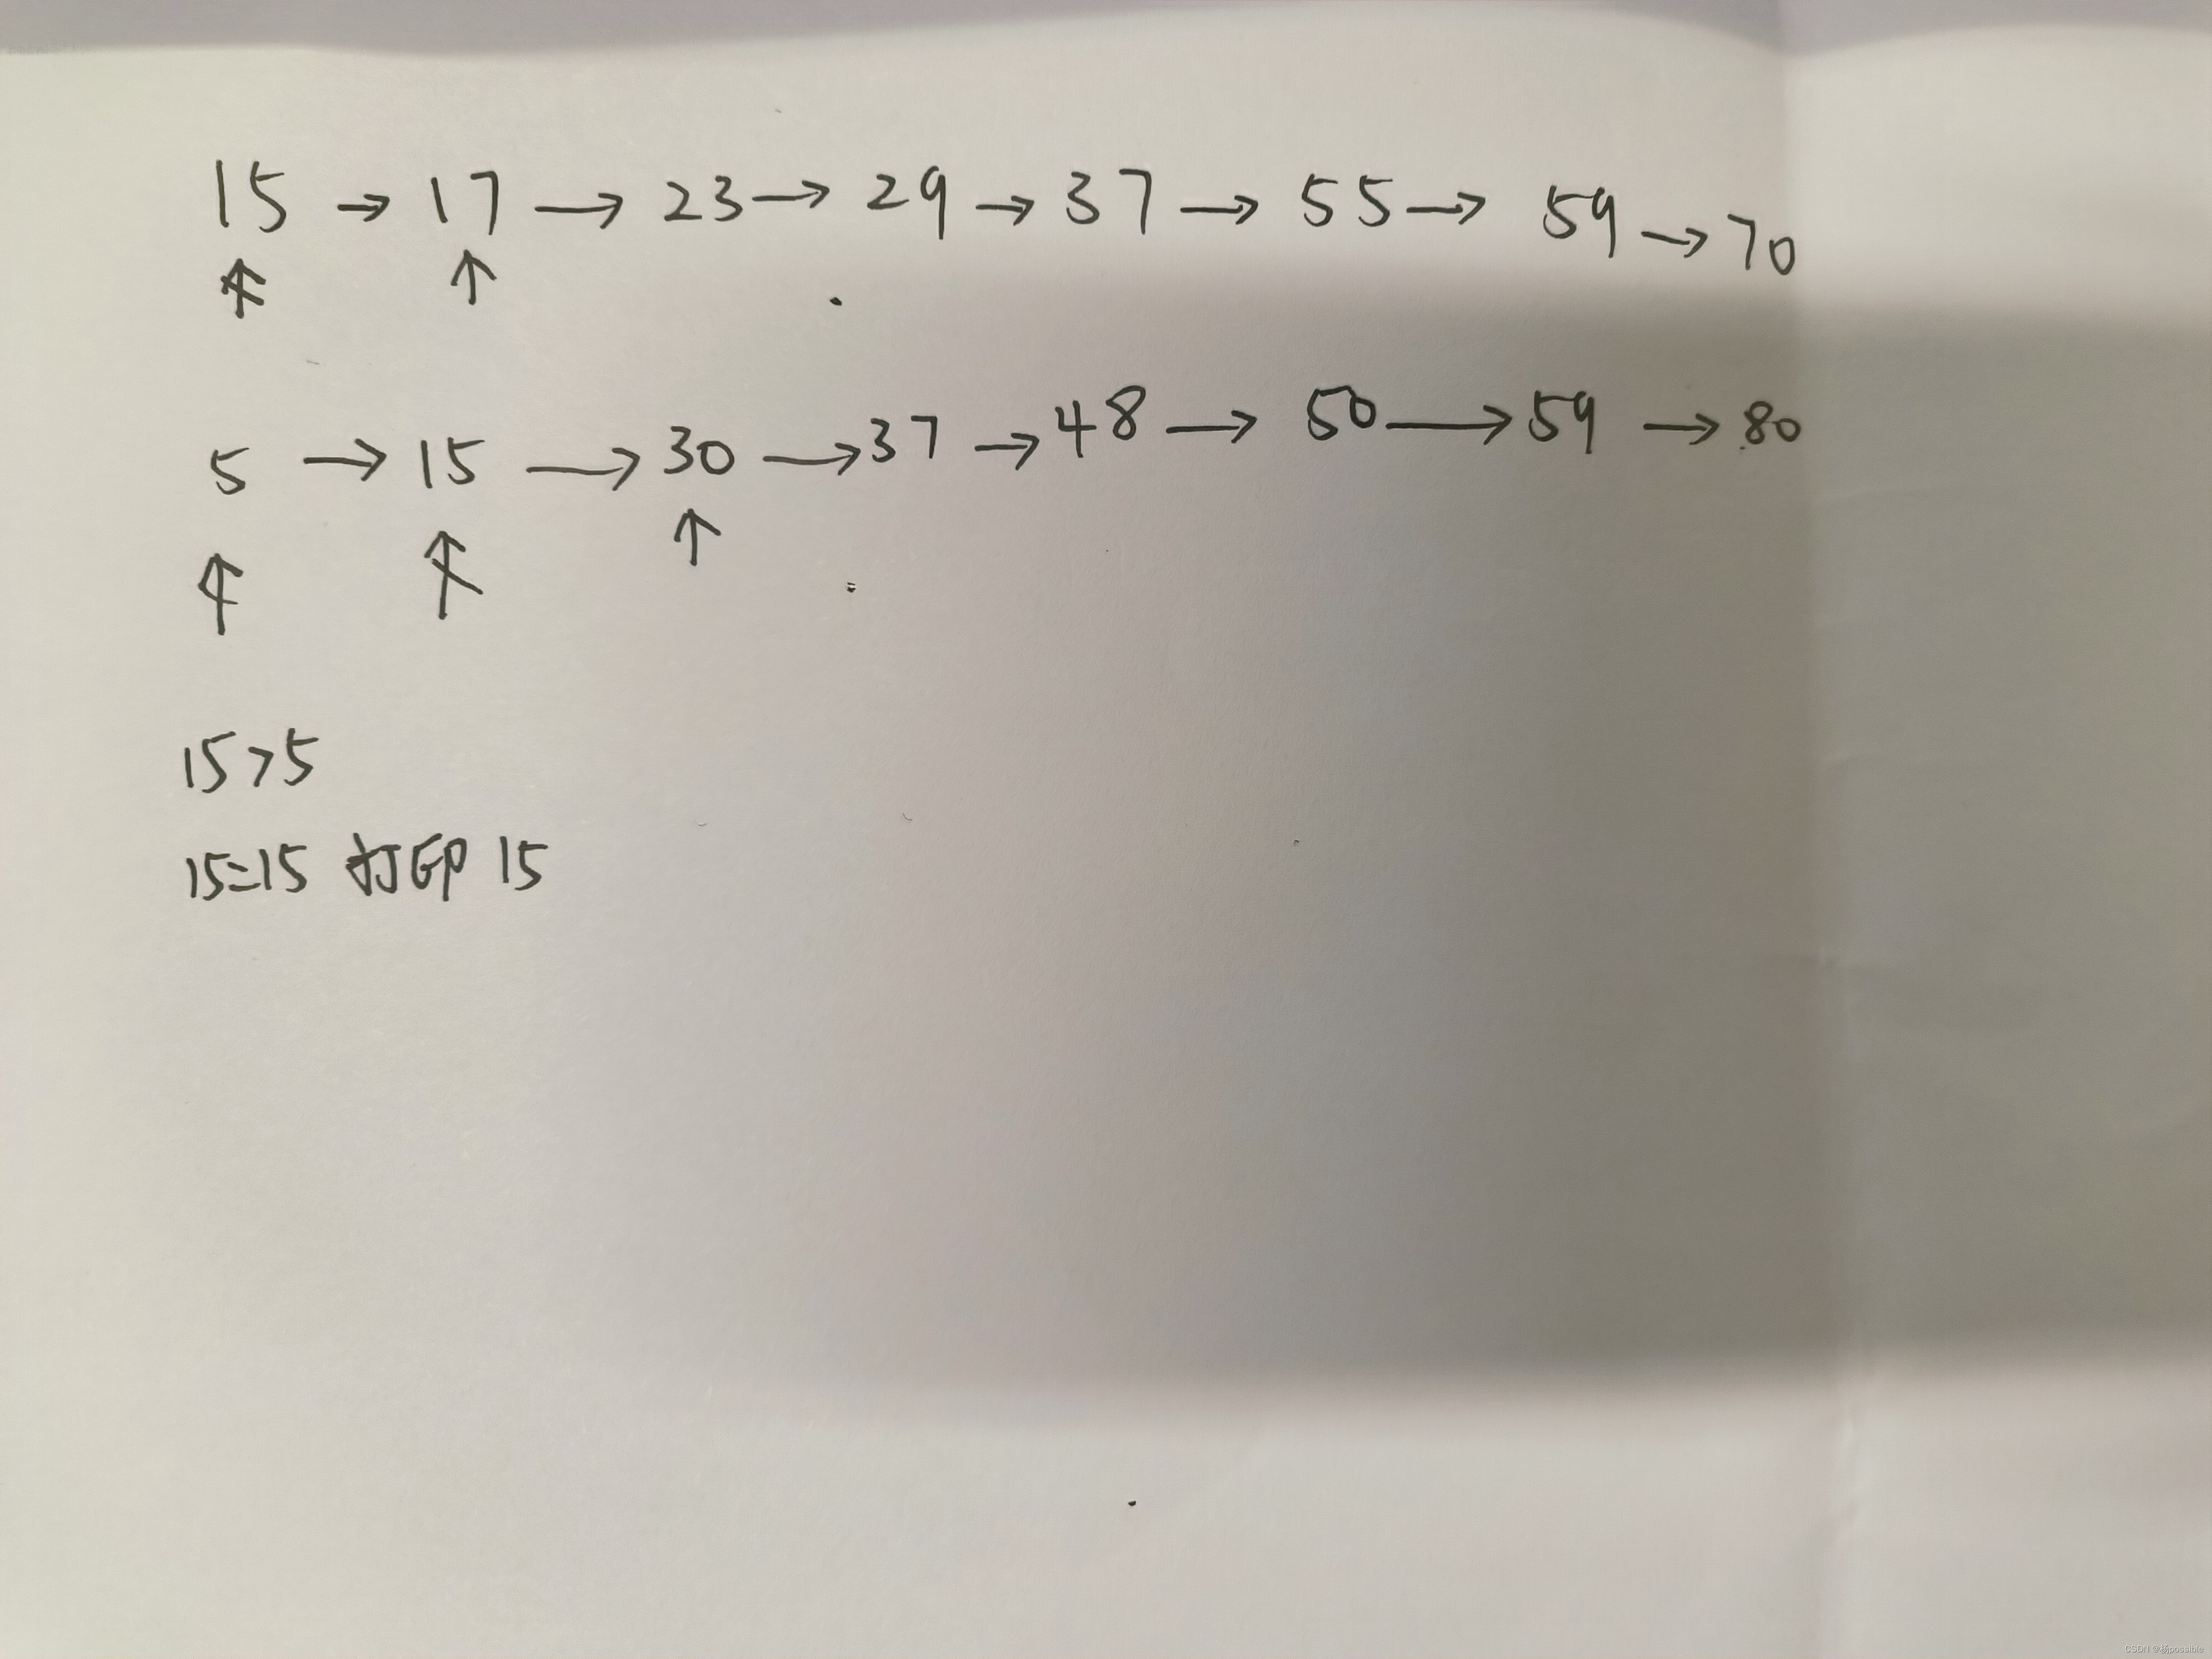 15 → 17 → 23 → 29 → 37 → 55 → 59 → 70
↑ ↑
5 → 15 → 30 → 37 → 48 → 50 → 59 → 80
↑ ↑ ↑
15>5
15=15 打印 15
CSDN @杨possible